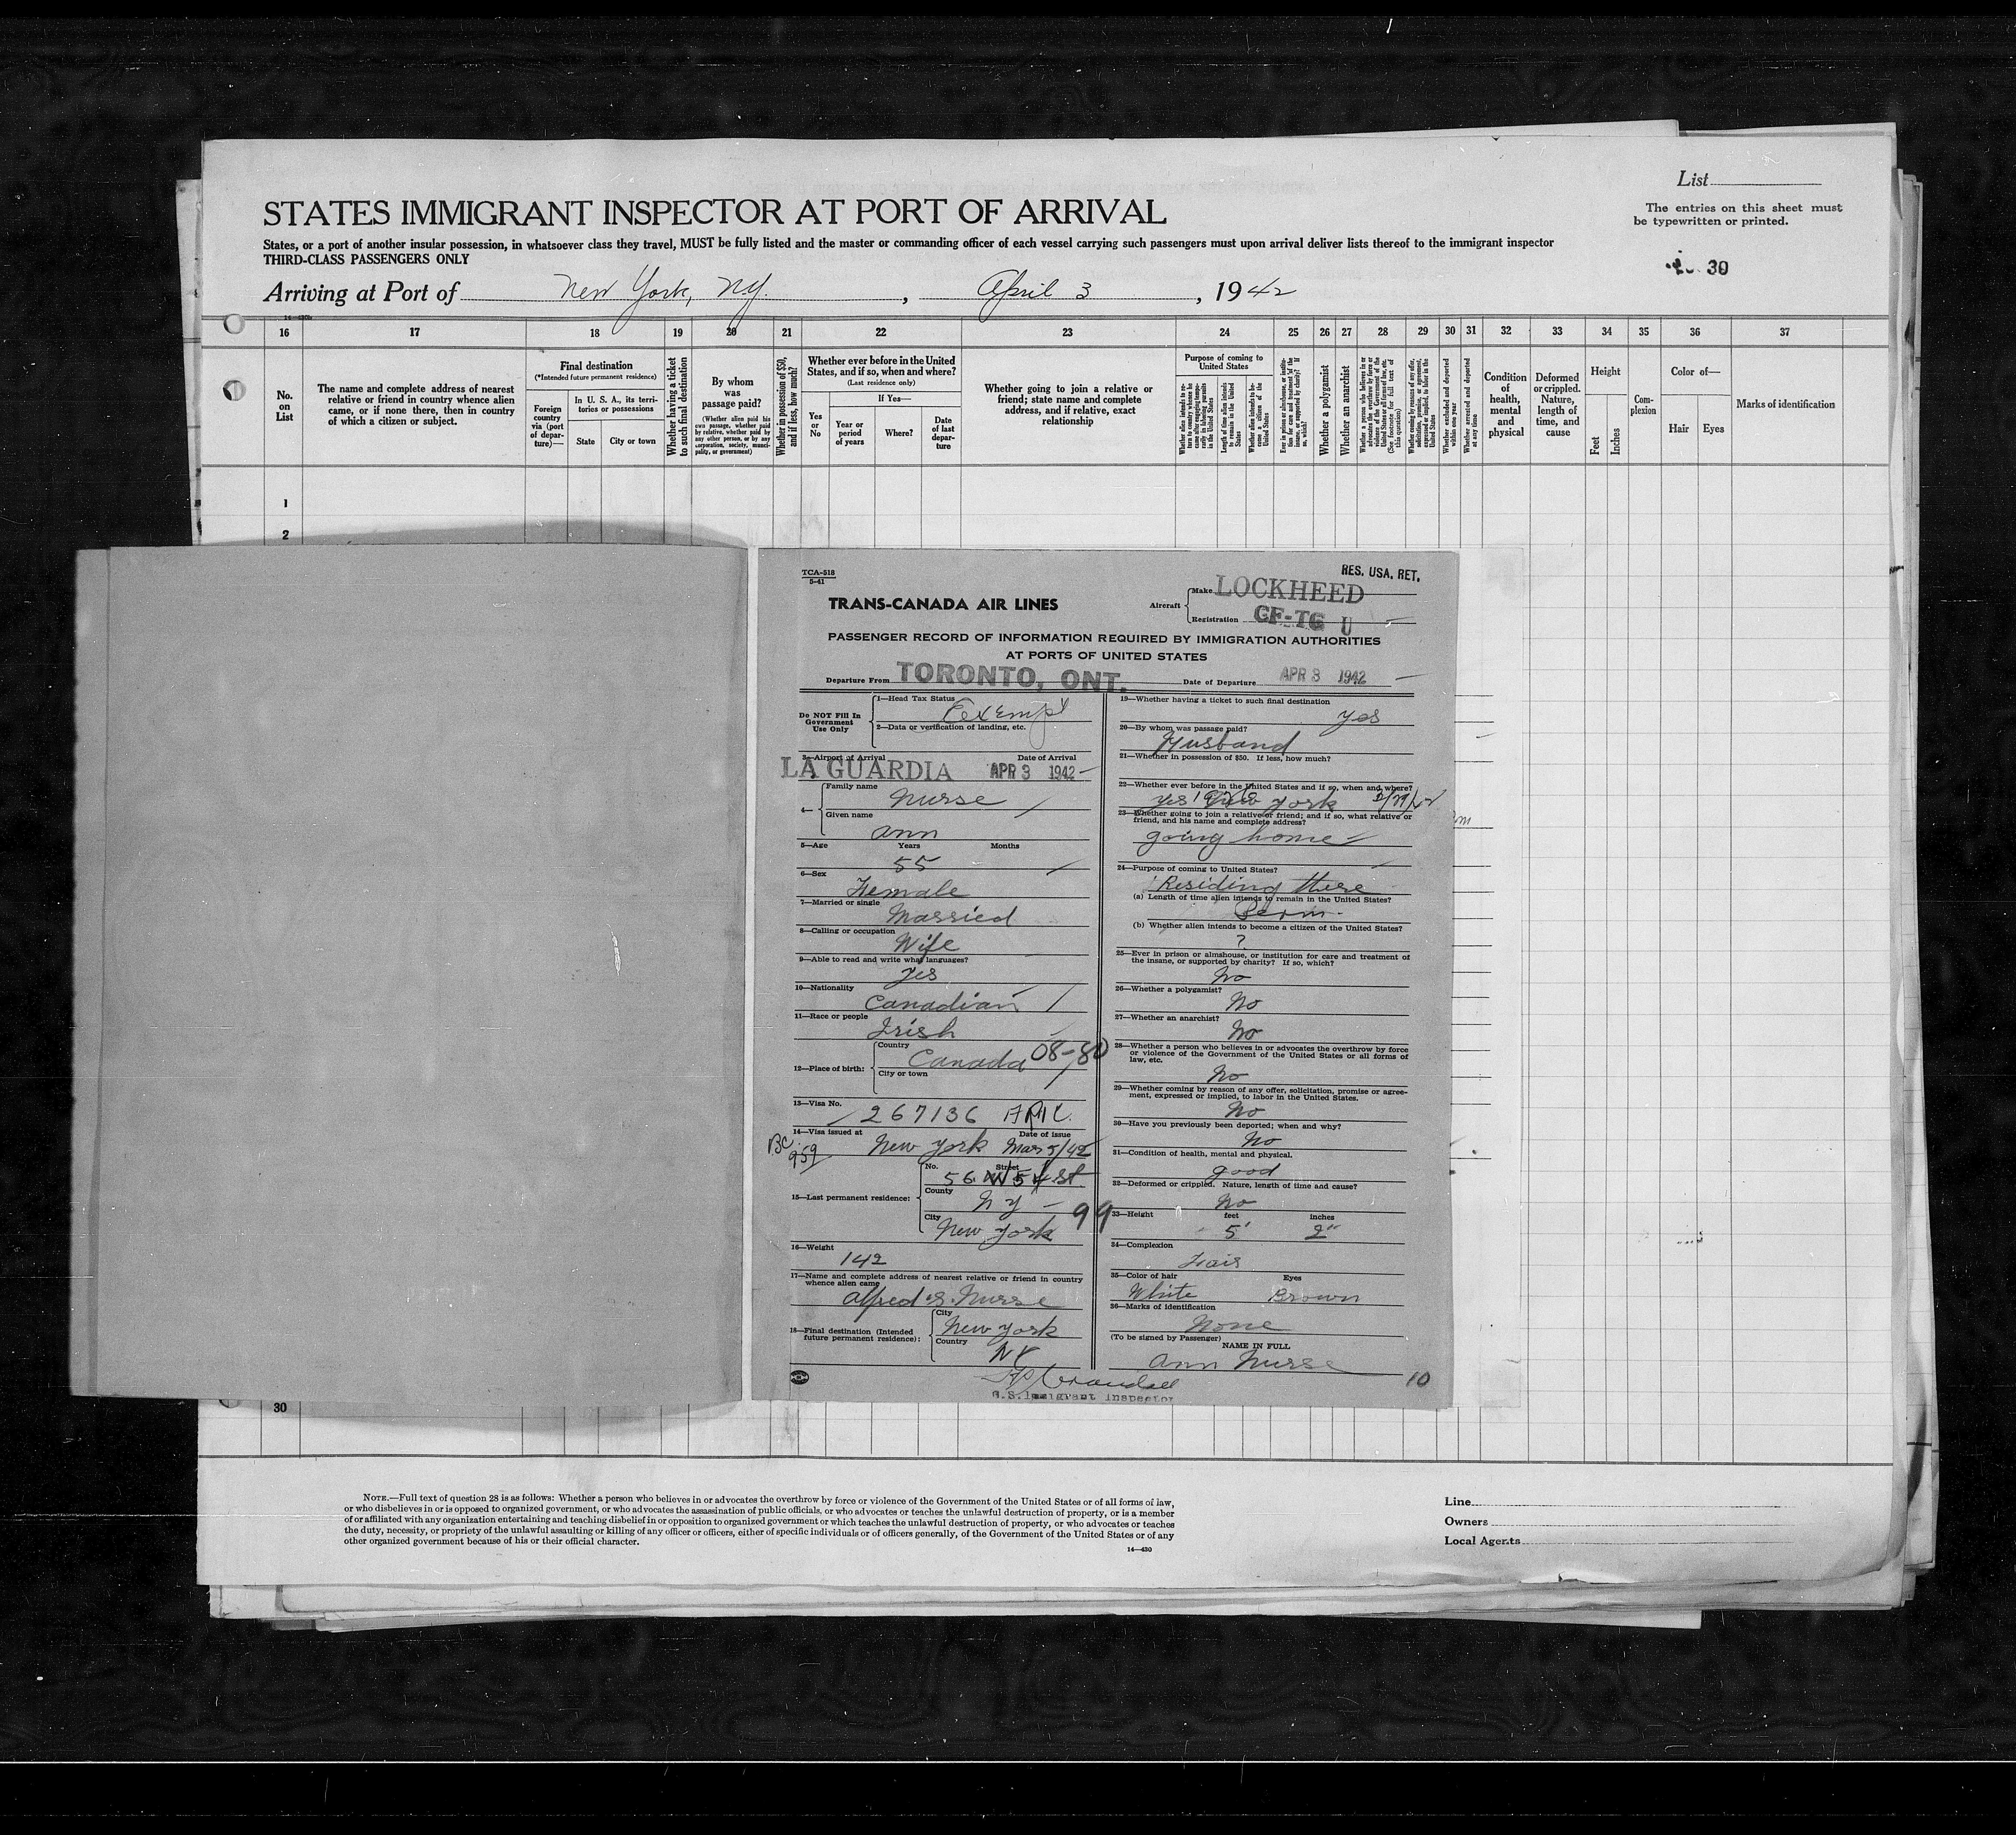 List
The entries on this sheet must
be typewritten or printed.
30
STATES IMMIGRANT INSPECTOR AT PORT OF ARRIVAL
States, or a port of another insular possession, in whatsoever class they travel, MUST be fully listed and the master or commanding officer of each vessel carrying such passengers must upon arrival deliver lists thereof to the immigrant inspector
THIRD-CLASS PASSENGERS ONLY
Arriving at Port of New York, N.Y. , April 3 , 1942
16 17 18 19 20 21 22 23 24 25 26 27 28 29 30 31 32 33 34 35 36 37
No.
on
List
The name and complete address of nearest
relative or friend in country whence alien
came, or if none there, then in country
of which a citizen or subject.
Final destination
(*Intended future permanent residence)
Foreign
country
via (port
of depar-
ture)—
In U. S. A., its terri-
tories or possessions
State City or town
Whether having a ticket
to such final destination
By whom
was
passage paid?
(Whether alien paid his
own passage, whether paid
by relative, whether paid by
any other person, or by any
corporation, society, munici-
pality, or government)
Whether in possession of $50,
and if less, how much?
Whether ever before in the United
States, and if so, when and where?
(Last residence only)
Yes
or
No
If Yes—
Year or
period
of years
Where?
Date
of last
depar-
ture
Whether going to join a relative or
friend; state name and complete
address, and if relative, exact
relationship
Purpose of coming to
United States
Whether a polygamist
Whether an anarchist
Condition
of
health,
mental
and
physical
Deformed
or crippled.
Nature,
length of
time, and
cause
Height
Feet
Inches
Com-
plexion
Color of—
Hair Eyes
Marks of identification
1
2
TCA-518
5-41
RES. USA, RET.
TRANS-CANADA AIR LINES
Aircraft
Make LOCKHEED
Registration CF-TG U
PASSENGER RECORD OF INFORMATION REQUIRED BY IMMIGRATION AUTHORITIES
AT PORTS OF UNITED STATES
Departure From TORONTO, ONT. Date of Departure APR 3 1942
Do NOT Fill In
Government
Use Only
1—Head Tax Status Exempt
2—Data or verification of landing, etc.
3—Airport of Arrival Date of Arrival
LA GUARDIA APR 3 1942
4—
Family name
Nurse
Given name
Ann
5—Age Years Months
55
6—Sex
Female
7—Married or single
Married
8—Calling or occupation
Wife
9—Able to read and write what languages?
Yes
10—Nationality
Canadian
11—Race or people
Irish
12—Place of birth:
Country
Canada 08-80
City or town
13—Visa No.
267136
14—Visa issued at Date of issue
BC 959
New York Mar 5/42
15—Last permanent residence:
No. Street
56 W 54 St
County
N Y
99
City
New York
16—Weight
142
17—Name and complete address of nearest relative or friend in country
whence alien came
Alfred S. Nurse
18—Final destination (Intended
future permanent residence):
City
New York
Country
NY
U.S. Immigrant Inspector
19—Whether having a ticket to such final destination
Yes
20—By whom was passage paid?
Husband
21—Whether in possession of $50. If less, how much?
22—Whether ever before in the United States and if so, when and where?
Yes New York
23—Whether going to join a relative or friend; and if so, what relative or
friend, and his name and complete address?
going home
24—Purpose of coming to United States?
Residing there
(a) Length of time alien intends to remain in the United States?
Perm.
(b) Whether alien intends to become a citizen of the United States?
?
25—Ever in prison or almshouse, or institution for care and treatment of
the insane, or supported by charity? If so, which?
No
26—Whether a polygamist?
No
27—Whether an anarchist?
No
28—Whether a person who believes in or advocates the overthrow by force
or violence of the Government of the United States or all forms of
law, etc.
No
29—Whether coming by reason of any offer, solicitation, promise or agree-
ment, expressed or implied, to labor in the United States.
No
30—Have you previously been deported; when and why?
No
31—Condition of health, mental and physical.
good
32—Deformed or crippled. Nature, length of time and cause?
No
33—Height feet inches
5' 2"
34—Complexion
Fair
35—Color of hair Eyes
White Brown
36—Marks of identification
None
(To be signed by Passenger)
NAME IN FULL
Ann Nurse
10
30
NOTE.—Full text of question 28 is as follows: Whether a person who believes in or advocates the overthrow by force or violence of the Government of the United States or of all forms of law,
or who disbelieves in or is opposed to organized government, or who advocates the assassination of public officials, or who advocates or teaches the unlawful destruction of property, or is a member
of or affiliated with any organization entertaining and teaching disbelief in or opposition to organized government or which teaches the unlawful destruction of property, or who advocates or teaches
the duty, necessity, or propriety of the unlawful assaulting or killing of any officer or officers, either of specific individuals or of officers generally, of the Government of the United States or of any
other organized government because of his or their official character.
14—430
Line
Owners
Local Agents